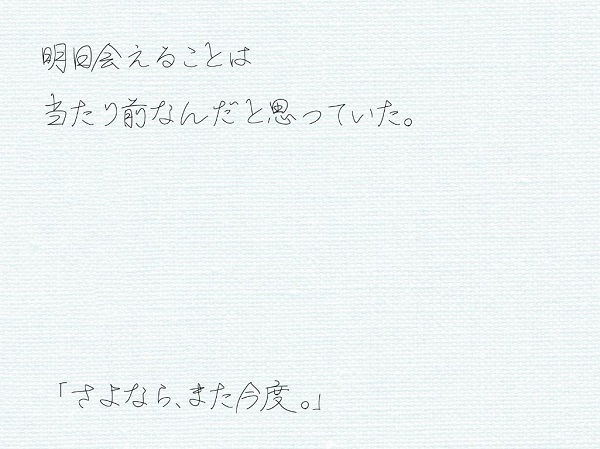 明日会えることは
当たり前なんだと思っていた。
「さよなら、また今度。」